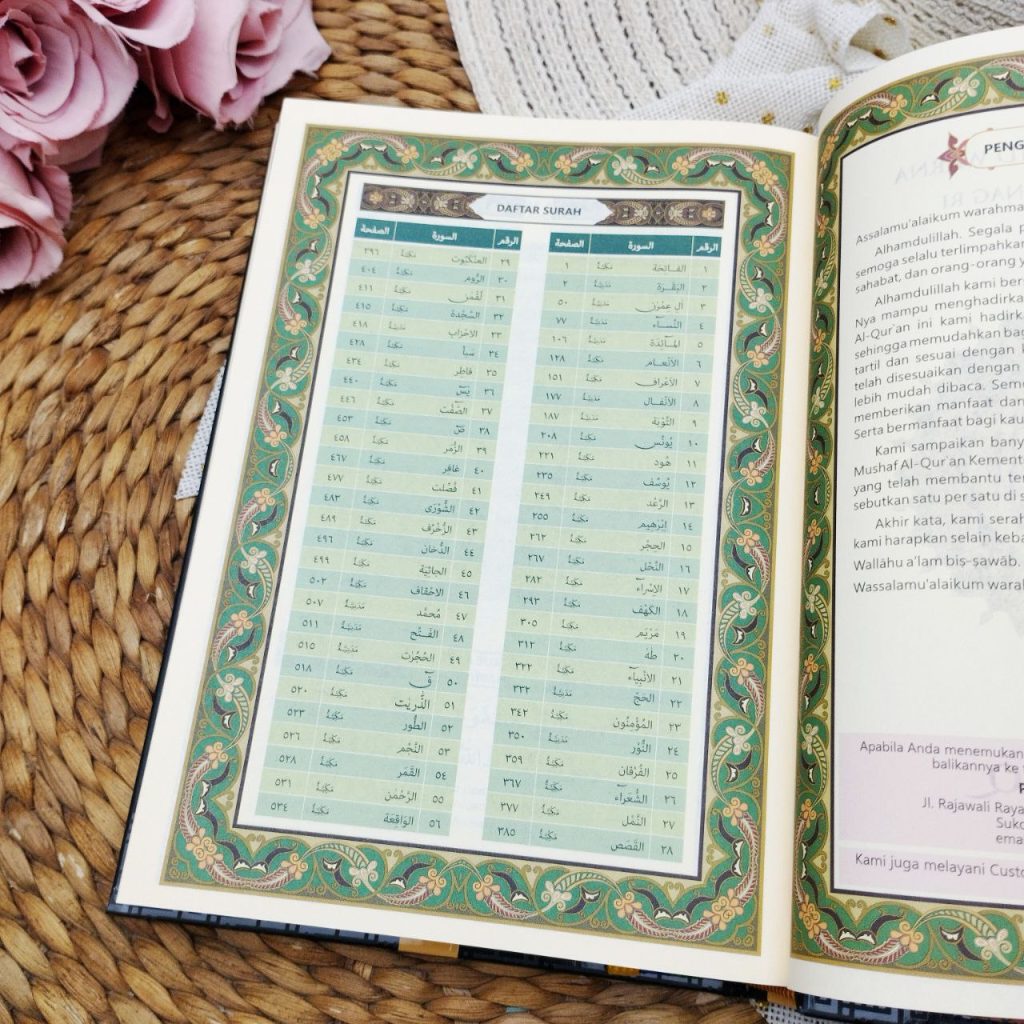 DAFTAR SURAH
الرقم السورة الصفحة
١ الفاتحة مكية ١
٢ البقرة مدنية ٢
٣ آل عمرٰن مدنية ٥٠
٤ النساۤء مدنية ٧٧
٥ الماۤئدة مدنية ١٠٦
٦ الانعام مكية ١٢٨
٧ الاعراف مكية ١٥١
٨ الانفال مدنية ١٧٧
٩ التوبة مدنية ١٨٧
١٠ يونس مكية ٢٠٨
١١ هود مكية ٢٢١
١٢ يوسف مكية ٢٣٥
١٣ الرعد مدنية ٢٤٩
١٤ ابرٰهيم مكية ٢٥٥
١٥ الحجر مكية ٢٦٢
١٦ النحل مكية ٢٦٧
١٧ الاسراۤء مكية ٢٨٢
١٨ الكهف مكية ٢٩٣
١٩ مريم مكية ٣٠٥
٢٠ طٰهٰ مكية ٣١٢
٢١ الانبياۤء مكية ٣٢٢
٢٢ الحج مدنية ٣٣٢
٢٣ المؤمنون مكية ٣٤٢
٢٤ النور مدنية ٣٥٠
٢٥ الفرقان مكية ٣٥٩
٢٦ الشعراۤء مكية ٣٦٧
٢٧ النمل مكية ٣٧٧
٢٨ القصص مكية ٣٨٥
الرقم السورة الصفحة
٢٩ العنكبوت مكية ٣٩٦
٣٠ الروم مكية ٤٠٤
٣١ لقمٰن مكية ٤١١
٣٢ السجدة مكية ٤١٥
٣٣ الاحزاب مدنية ٤١٨
٣٤ سبأ مكية ٤٢٨
٣٥ فاطر مكية ٤٣٤
٣٦ يٰسۤ مكية ٤٤٠
٣٧ الصّٰۤفّٰت مكية ٤٤٦
٣٨ صۤ مكية ٤٥٣
٣٩ الزمر مكية ٤٥٨
٤٠ غافر مكية ٤٦٧
٤١ فصلت مكية ٤٧٧
٤٢ الشورٰى مكية ٤٨٣
٤٣ الزخرف مكية ٤٨٩
٤٤ الدخان مكية ٤٩٦
٤٥ الجاثية مكية ٤٩٩
٤٦ الاحقاف مكية ٥٠٢
٤٧ محمد مدنية ٥٠٧
٤٨ الفتح مدنية ٥١١
٤٩ الحجرٰت مدنية ٥١٥
٥٠ قۤ مكية ٥١٨
٥١ الذّٰريٰت مكية ٥٢٠
٥٢ الطور مكية ٥٢٣
٥٣ النجم مكية ٥٢٦
٥٤ القمر مكية ٥٢٨
٥٥ الرحمٰن مكية ٥٣١
٥٦ الواقعة مكية ٥٣٤
PENG
Assalamu'alaikum warahma
Alhamdulillah. Segala p
semoga selalu terlimpahkan
sahabat, dan orang-orang y
Alhamdulillah kami ber
Nya mampu menghadirka
Al-Qur'an ini kami hadirk
sehingga memudahkan bag
tartil dan sesuai dengan
telah disesuaikan dengan
lebih mudah dibaca. Sem
memberikan manfaat dan
Serta bermanfaat bagi kau
Kami sampaikan bany
Mushaf Al-Qur'an Kement
yang telah membantu te
sebutkan satu per satu di s
Akhir kata, kami serah
kami harapkan selain keba
Wallāhu a'lam biṣ-ṣawāb.
Wassalamu'alaikum wara
Apabila Anda menemukan
balikannya ke
P
Jl. Rajawali Raya
Suko
ema
Kami juga melayani Custo